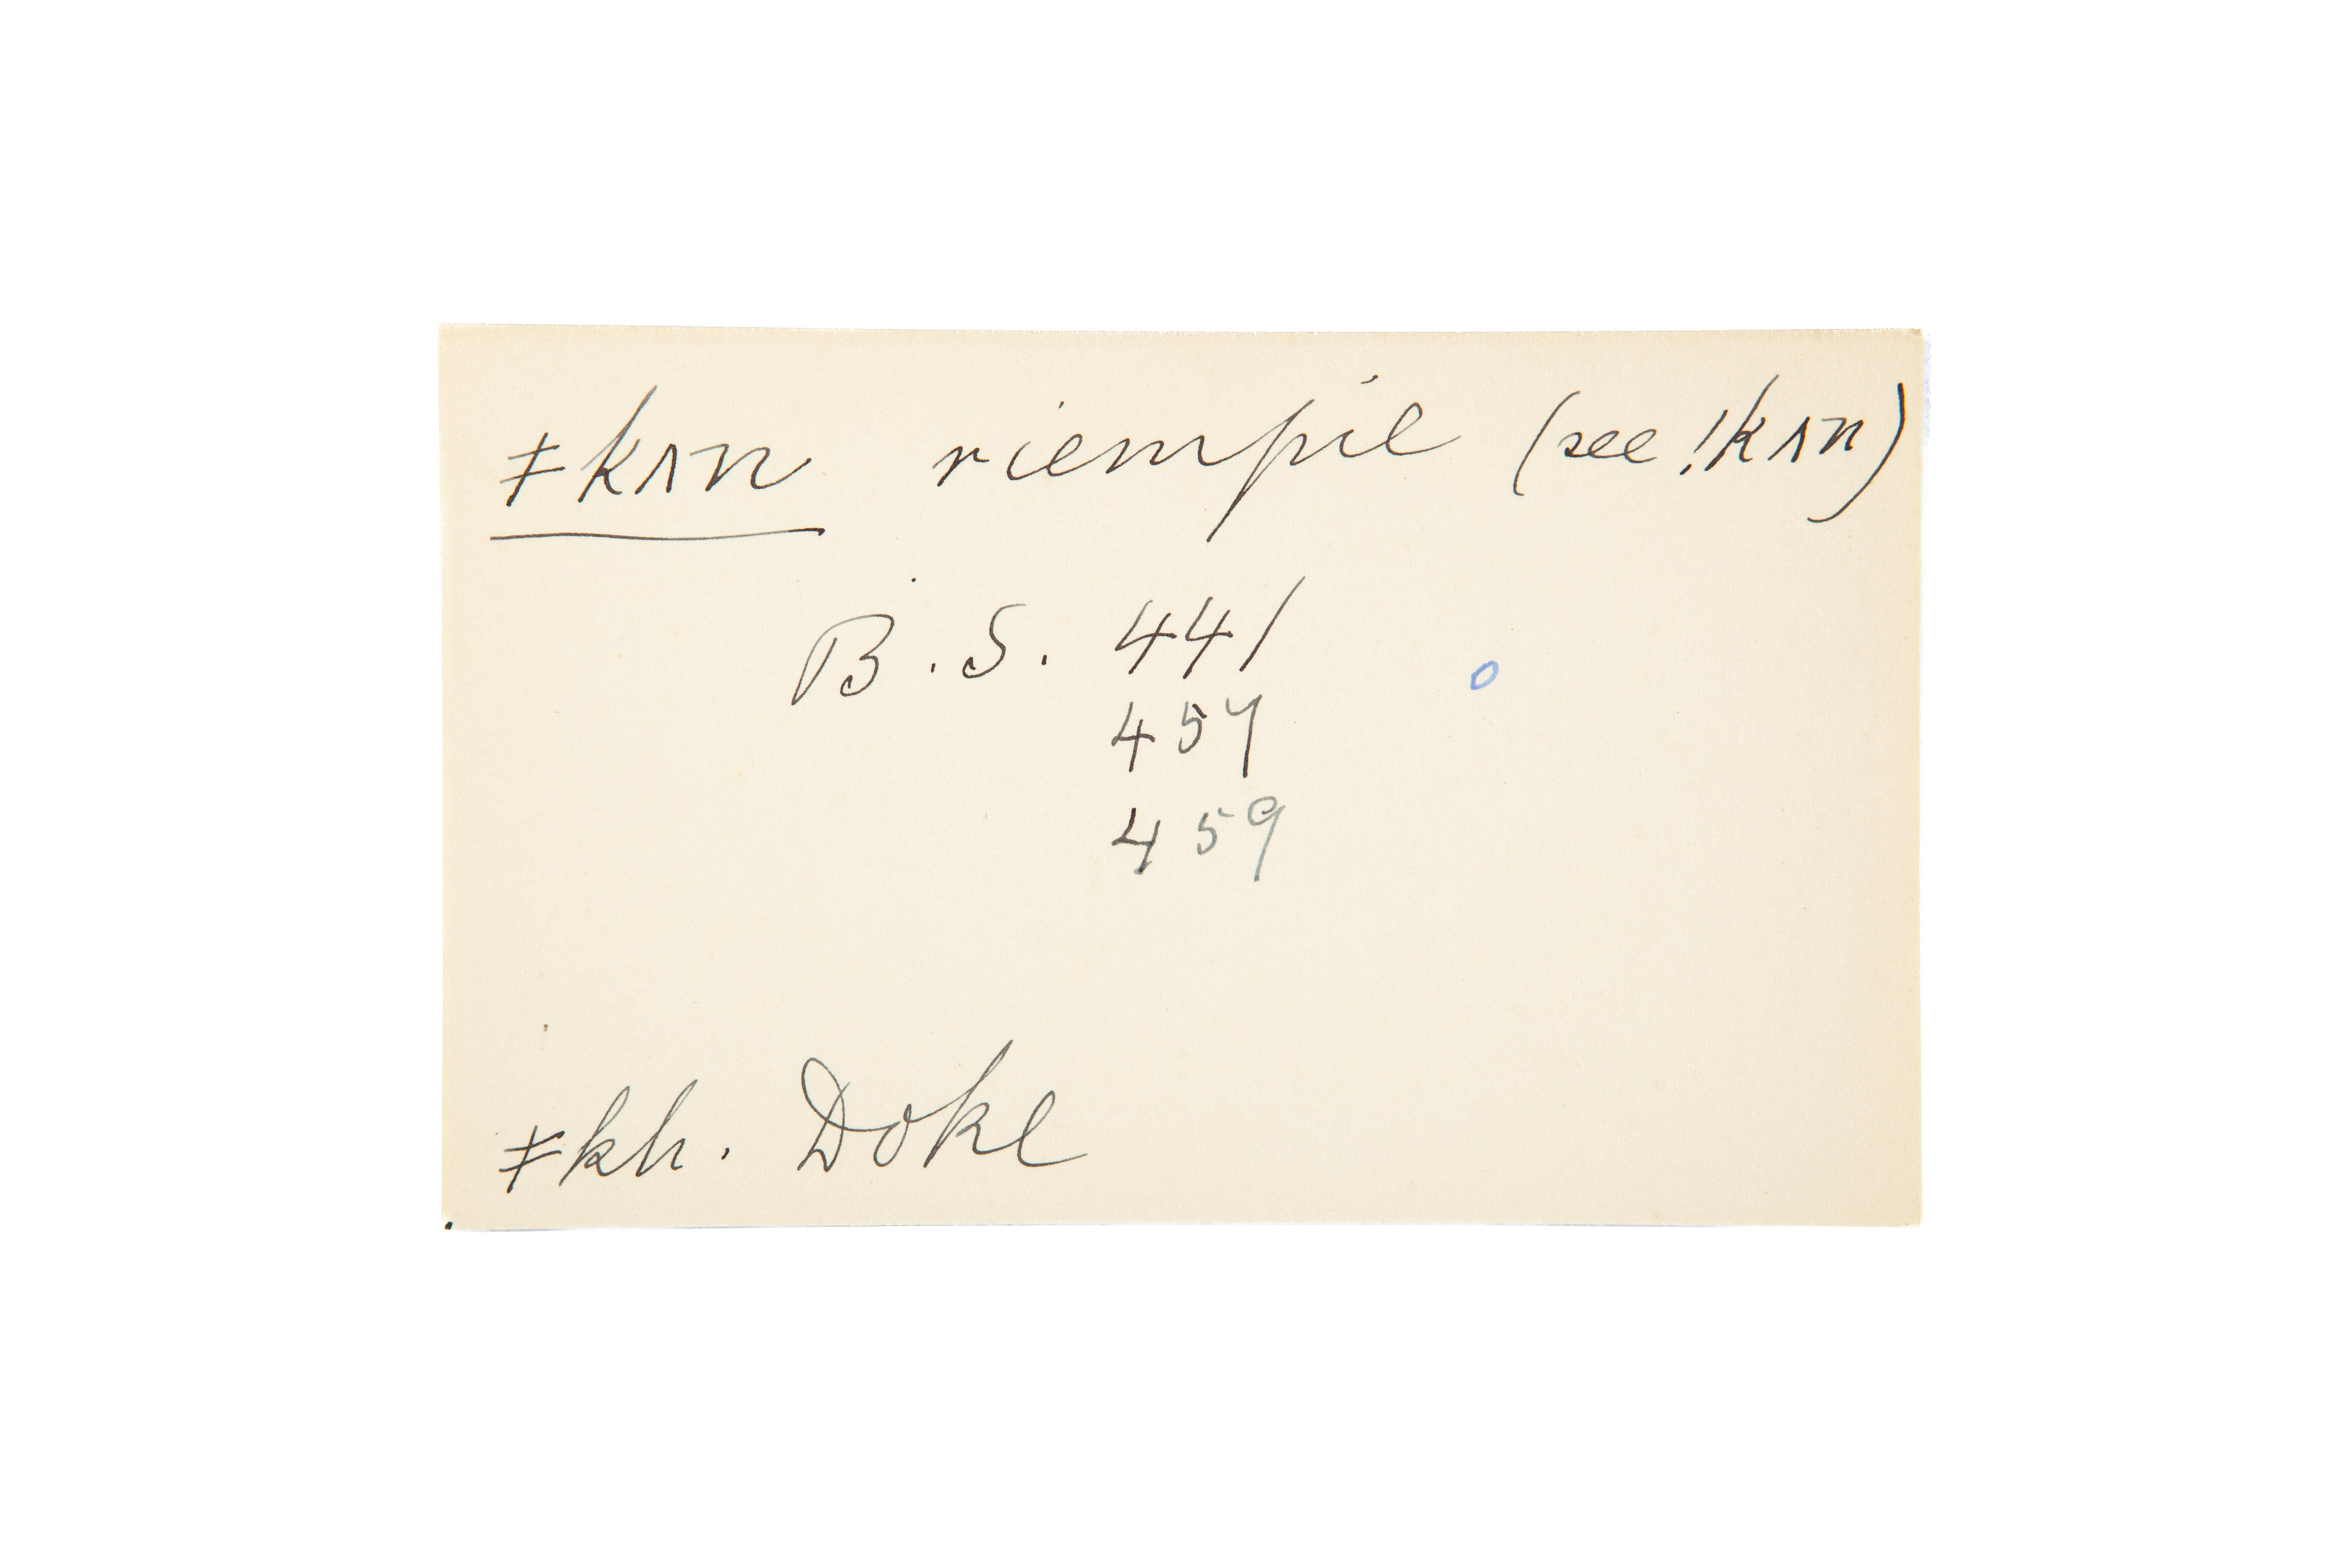 ǂkʌn riempie (see !kʌn)
B.S. 441
457
459
ǂkh. Doke